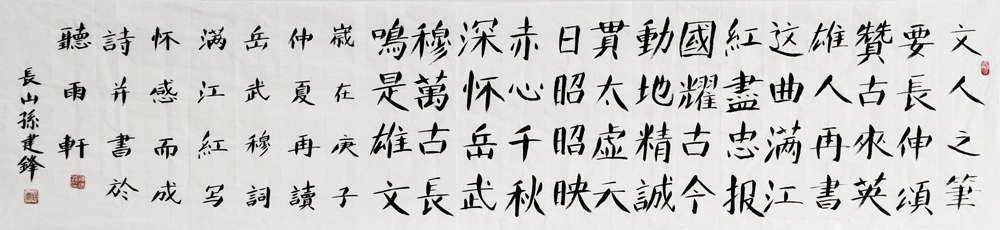 文人之筆
要長伸頌
贊古來英
雄人再書
这曲满江
紅盡忠报
國耀古今
動地精誠
貫太虛天
日昭昭映
赤心千秋
深怀岳武
穆萬古長
鳴是雄文
嵗在庚子
仲夏再讀
岳武穆詞
满江紅写
怀感而成
詩并書於
聽雨軒
長山孫建鋒